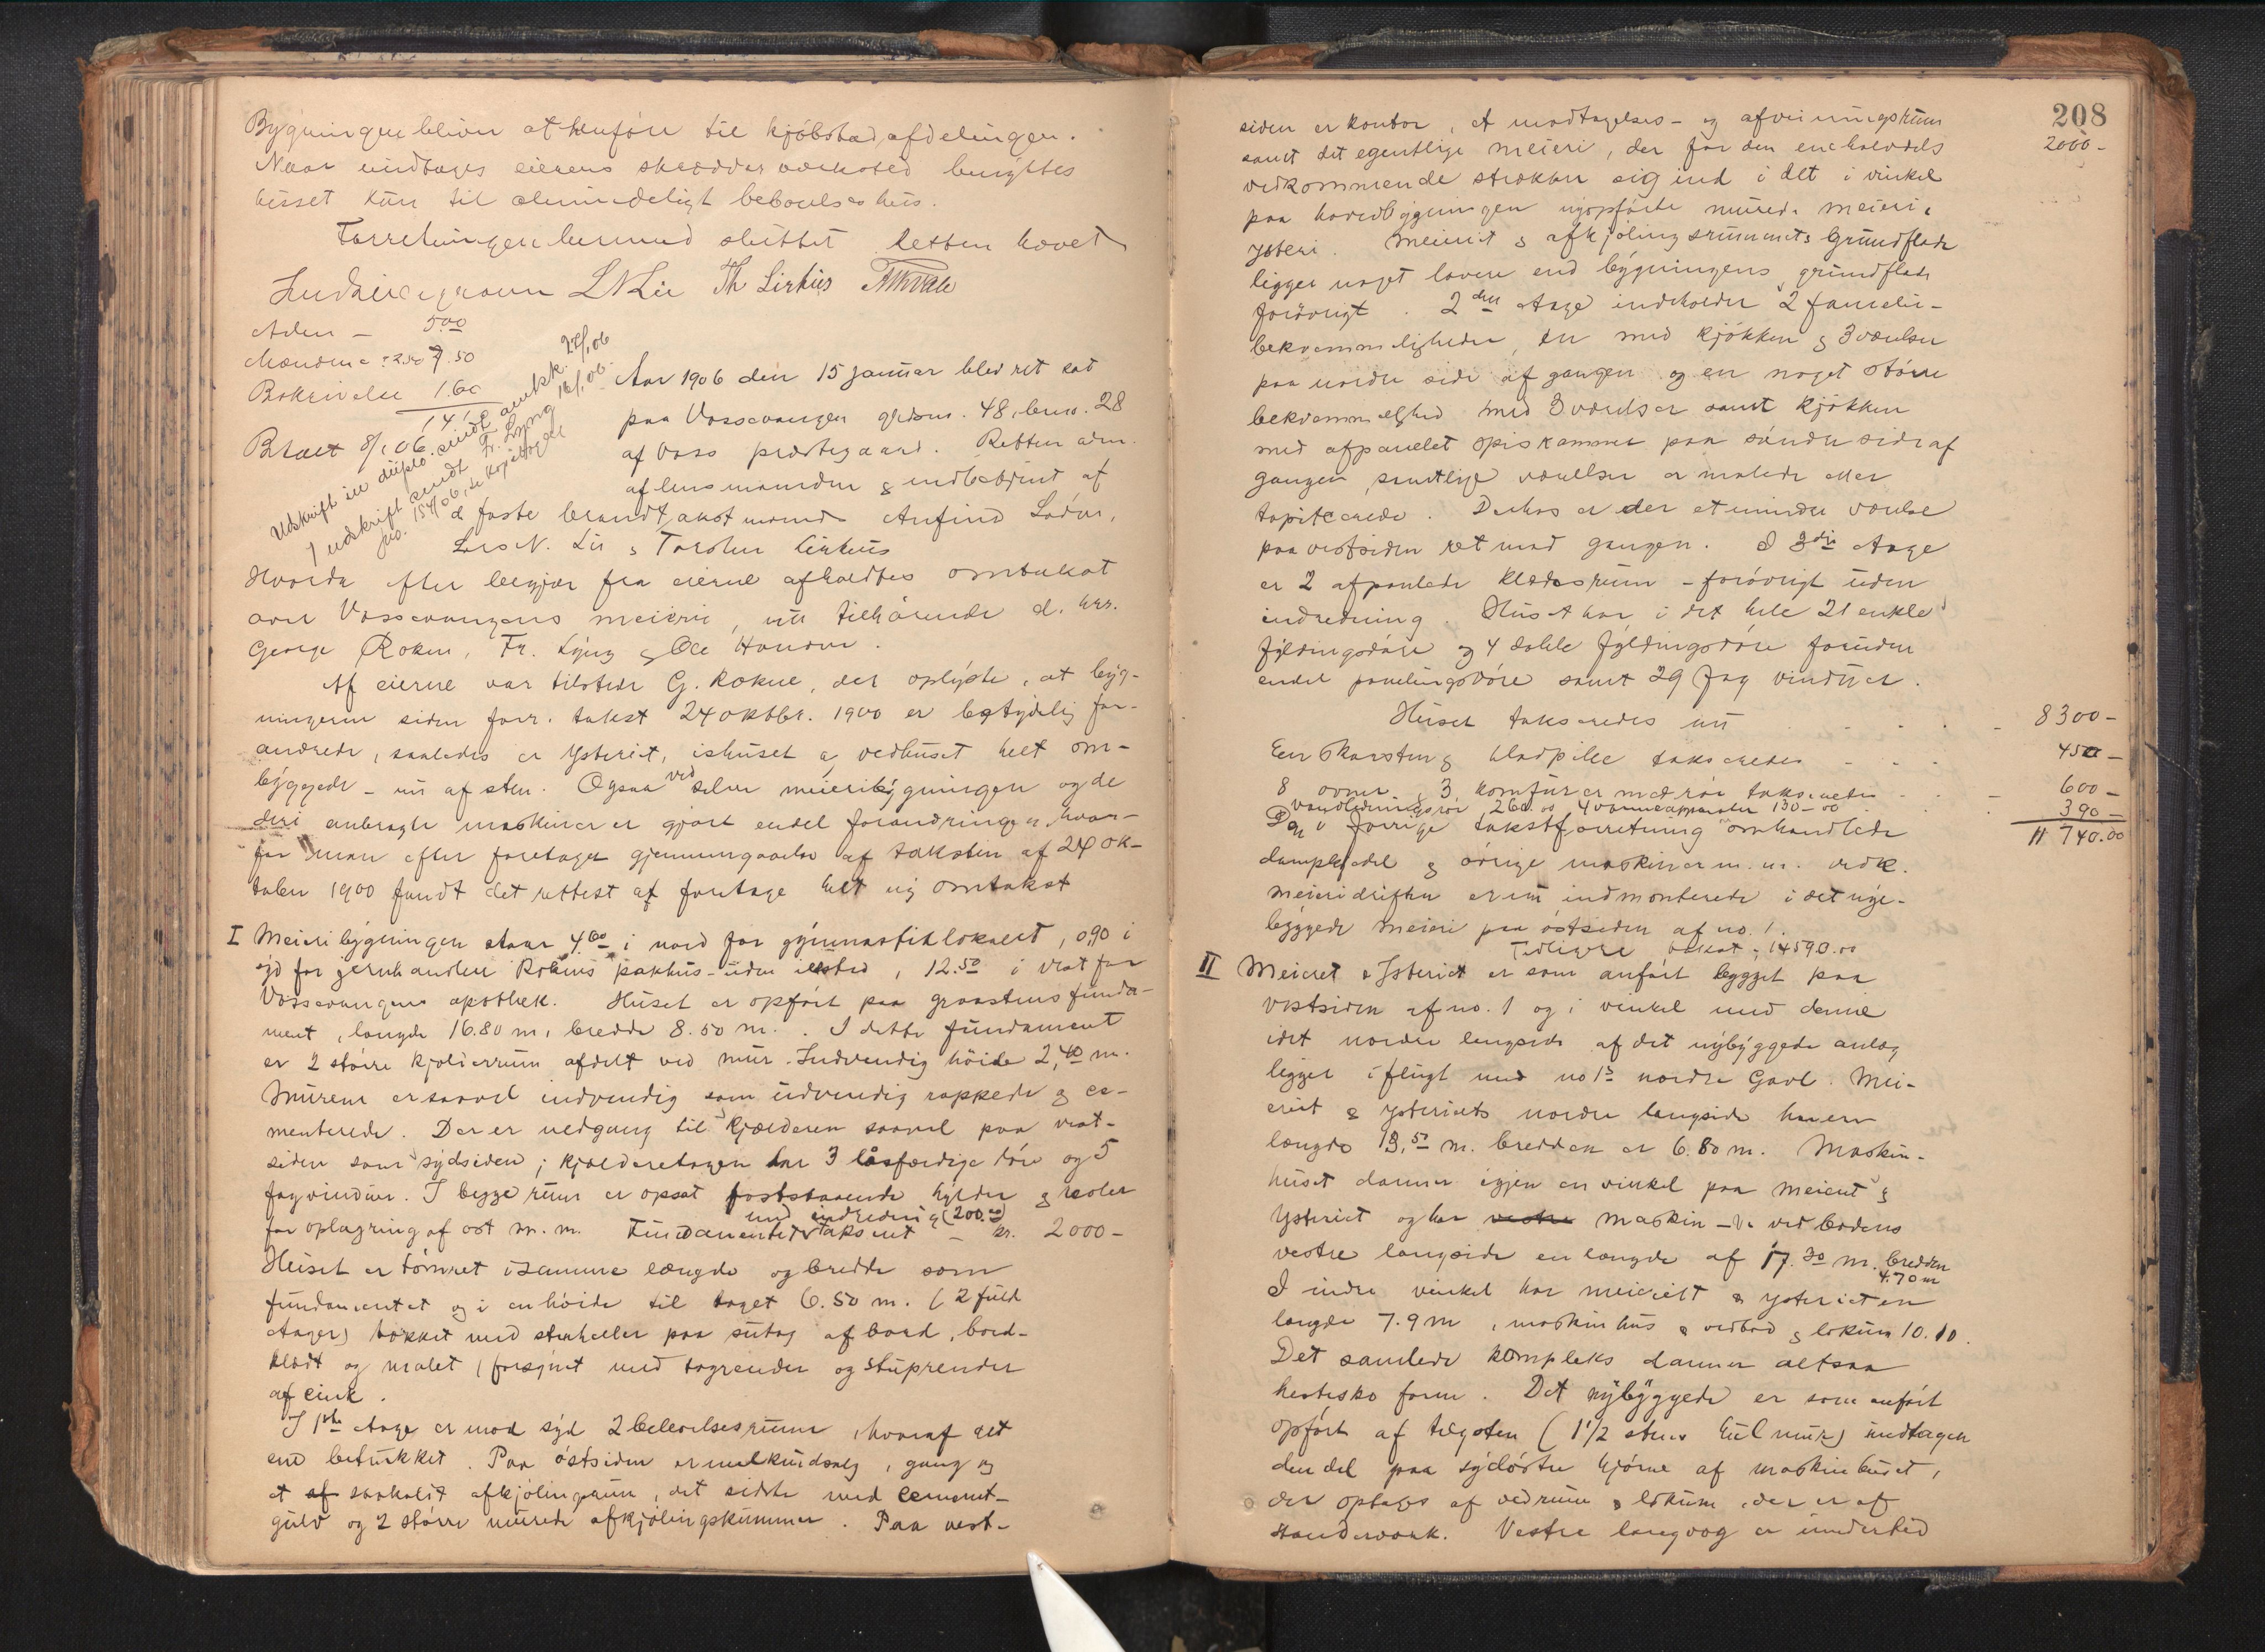 Bygningen bliver at henføre til kjøbstadafdelingen.
Naar undtages eierens skrædderværksted benyttes
huset kun til almindeligt beboelseshus.
Forretningen hermed sluttet Retten hævet
L N Lie Th Lirhus
5.00
Mændene à 2.50 7.50
Beskrivelse 1.60
14.10
Betalt 8/1 06.
Udskrift in duplo sendt amtsk. 22/1 06
1 udskrift sendt Fr. Lyng 16/1 06.
Aar 1906 den 15 januar blev ret sat
paa Vossevangen gårdsn. 48, brno. 28
af Voss præstegaard. Retten adm.
af lensmanden & medbetjent af
d faste brandtakstmænd Anfind Lødve,
Lars N. Lie & Torsten Lirhus
Hvorda efter begjær fra eierne afholdtes omtakst
over Vossevangens meieri, nu tilhørende d. hrr.
George Rokne, Fr. Lyng & Ole Hansen.
Af eierne var tilstede G. Rokne, der oplyste, at byg-
ningerne siden forr. takst 24 oktbr. 1900 er betydelig for-
andrede, saaledes er Ysteriet, ishuset og vedhuset helt om-
byggede - nu af sten. Ogsaa ved selve meieribygningen og de
deri anbragte maskiner er gjort endel forandringer, hvor-
for man efter foretagen gjennemgaaelse af taksten af 24 ok-
tober 1900 fandt det rettest at foretage helt ny omtakst
I Meieribygningen staar 4.60 i nord for gymnastiklokalet, 0,90 i
syd for jernhandler Roknes pakhus - uden ildsted, 12.50 i vest for
Vossevangens apothek. Huset er opført paa graastens funda-
ment, længde 16.80 m, bredde 8.50 m.. I dette fundament
er 2 større kjælderrum afdelt ved mur. Indvendig høide 2,40 m.
Murene er saavel indvendig som udvendig rappede & ce-
menterede. Der er nedgang til kjælderen saavel paa vest-
siden som sydsiden; kjælderetagen har 3 låsfærdige døre og 5
fag vinduer. I begge rum er opsat faststaaende hylder & reoler
for oplagring af ost m. m. Fundamentet taksert - kr. 2000-
med indredning (200.00)
Huset er tømret i samme længde og bredde som
fundamentet og i en høide til taget 6.50 m. (2 fuld
etager) tækket med stenheller paa sutag af bord, bord-
klædt og malet, forsynet med tagrender og stuprender
af zink.
I 1ste etage er mod syd 2 beboelsesrum, hvoraf det
ene betrukket. Paa østsiden er melkeudsalg, gang og
et saakaldt afkjølingsrum, det sidste med cement-
gulv og 2 større murede afkjølingskummer. Paa vest-
208
2000-
siden er kontor, et modtagelses- og afveiningsrum
samt det egentlige meieri, der for den ene halvdels
vedkommende strækker sig ind i det i vinkel
paa hovedbygningen nyopførte murede meieri &
ysteri. Meieriet & afkjølingsrummets Grundflade
ligger noget lavere end bygningens grundflade
forøvrigt. 2den etage indeholder 2 familie-
bekvemmeligheder, en med kjøkken & 3 værelser
paa nordre side af gangen og en noget større
bekvemmelighed med 3 værelser samt kjøkken
med afpanelet spiskammer paa søndre side af
gangen, samtlige værelser er malede eller
tapitserede. Derhos er der et mindre værelse
paa vestsiden ret mod gangen. I 3die etage
er 2 afpanlede klædesrum - forøvrigt uden
indredning. Huset har i det hele 21 enkle
fyldingsdøre og 4 doble fyldingsdøre foruden
endel panelingsdøre samt 29 fag vinduer.
Huset takseredes nu 8300-
Een skorsten & bladpibe takseredes 450-
8 ovne & 3 komfurer med rør takseredes 600-
vandledningsrør 260.00, 4 varmeapparater 130-00 390-
11 740.00
De i forrige takstforretning omhandlede
dampkjedel & øvrige maskiner m. m. vedk.
meieridriften er nu indmonterede i det nye-
byggede meieri paa østsiden af no. 1.
Tidligere takst; 14590.00
II Meieriet & Ysteriet er som anført bygget paa
vestsiden af no. 1 og i vinkel med denne
idet nordre langside af det nybyggede anlæg
ligger i flugt med no 1s nordre Gavl. Mei-
eriet & ysteriets nordre langside har en
længde 13,50 m. bredden er 6.80 m. Maskin-
huset danner igjen en vinkel paa meieriet &
Ysteriet og har maskin - & vedbodens
vestre langside en længde af 17.30 m. bredden
4.70 m
I indre vinkel har meieriet & ysteriet en
længde 7.9 m, maskinhus & vedbod & lokum 10.10.
Det samlede kompleks danner altsaa
hestesko form. Det nybyggede er som anført
opført af teglsten (1 1/2 stens hul mur) undtagen
den del paa sydøstre hjørne af maskinhuset,
der optages af vedrum & lokum, der er af
standerværk. Vestre langvæg er